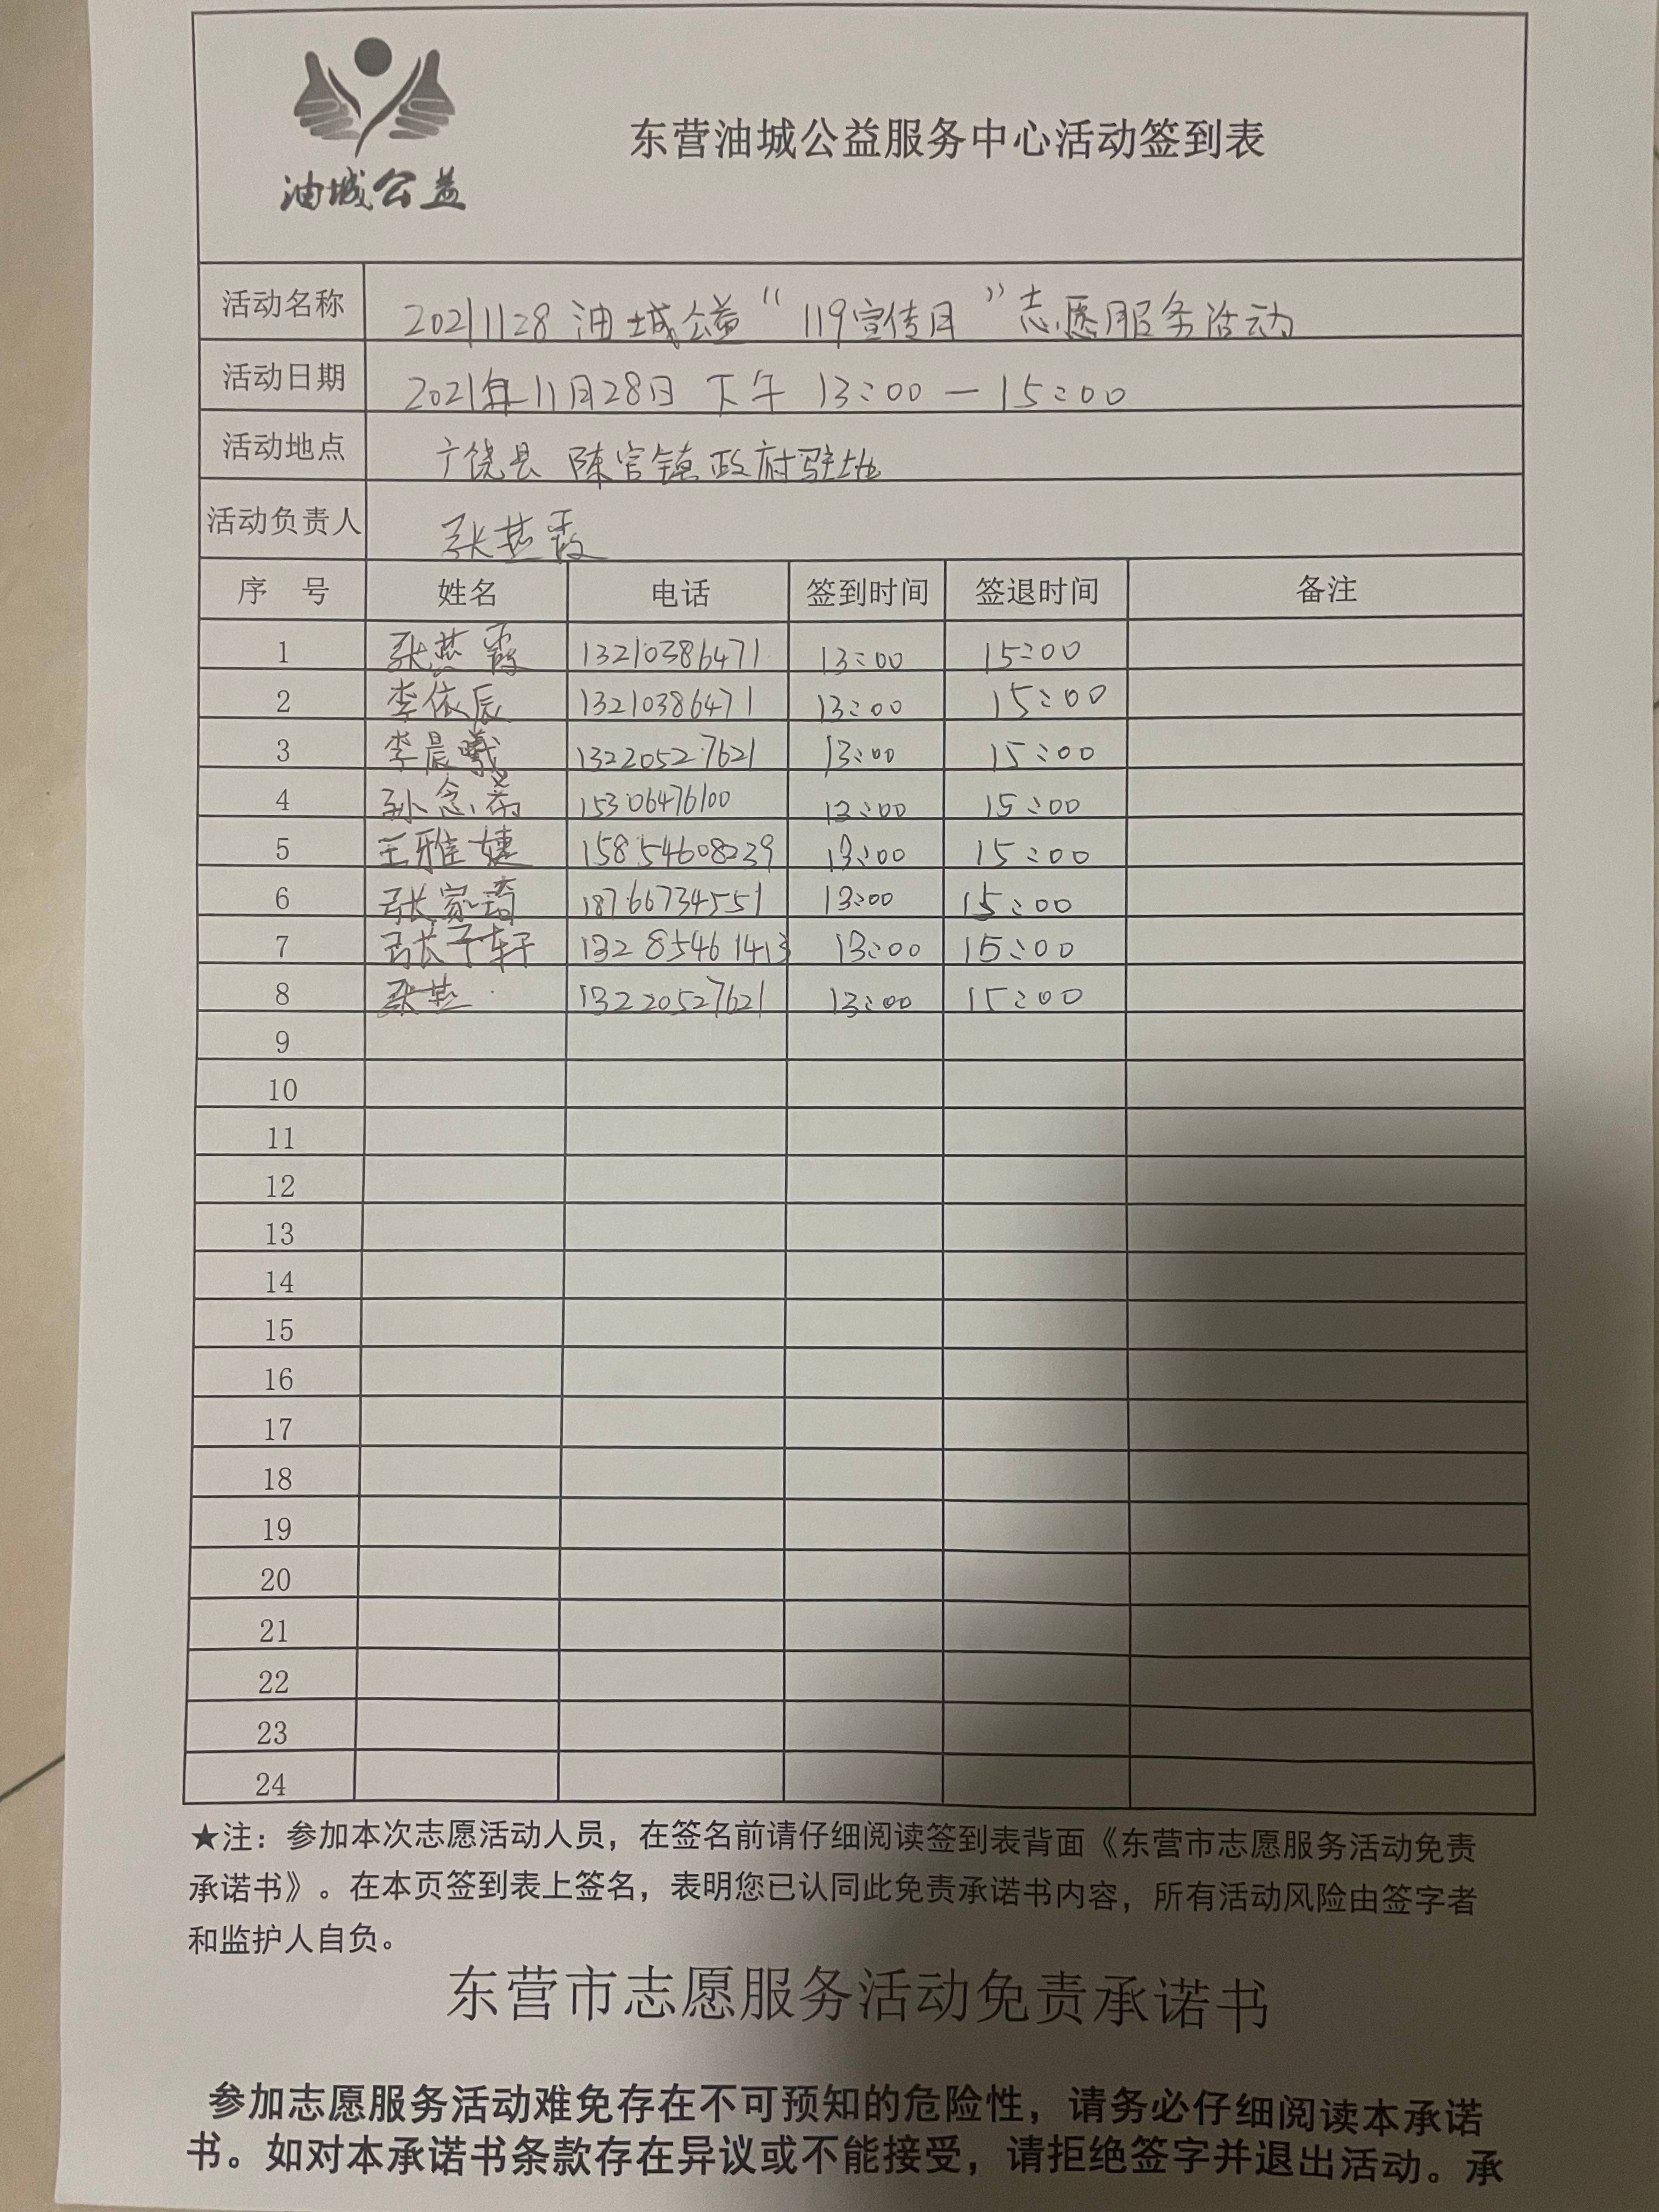 油城公益
东营油城公益服务中心活动签到表
活动名称 20211128 油城公益“119宣传月”志愿服务活动
活动日期 2021年11月28日 下午 13:00 — 15:00
活动地点 广饶县 陈官镇政府驻地
活动负责人 张燕霞
序 号 姓名 电话 签到时间 签退时间 备注
1 张燕霞 13210386471 13:00 15:00
2 李依辰 13210386471 13:00 15:00
3 李晨曦 13220527621 13:00 15:00
4 孙念 15306476100 13:00 15:00
5 王雅婕 15854608239 13:00 15:00
6 张家琦 18766734551 13:00 15:00
7 张子轩 13285461413 13:00 15:00
8 张燕 13220527621 13:00 15:00
9
10
11
12
13
14
15
16
17
18
19
20
21
22
23
24
★注：参加本次志愿活动人员，在签名前请仔细阅读签到表背面《东营市志愿服务活动免责
承诺书》。在本页签到表上签名，表明您已认同此免责承诺书内容，所有活动风险由签字者
和监护人自负。
东营市志愿服务活动免责承诺书
参加志愿服务活动难免存在不可预知的危险性，请务必仔细阅读本承诺
书。如对本承诺书条款存在异议或不能接受，请拒绝签字并退出活动。承